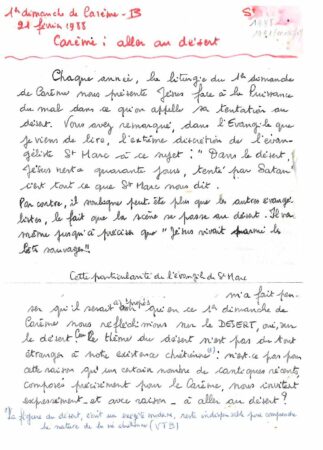 1er dimanche de Carême - B
21 février 1988
Carême : aller au désert
Chaque année, la liturgie du 1er dimanche
de Carême nous présente Jésus face à la Puissance
du mal dans ce qu'on appelle sa tentation au
désert. Vous avez remarqué, dans l'Evangile que
je viens de lire, l'extrême discrétion de l'évan-
géliste St Marc à ce sujet : "Dans le désert,
Jésus resta quarante jours, tenté par Satan"
c'est tout ce que St Marc nous dit.
Par contre, il souligne peut être plus que les autres évangé-
listes, le fait que la scène se passe au désert. Il va
même jusqu'à préciser que "Jésus vivait parmi les
bêtes sauvages"!!
Cette particularité de l'évangile de St Marc
m'a fait pen-
ser qu'il serait à propos qu'en ce 1er dimanche de
Carême nous réfléchissions sur le DÉSERT, oui, sur
le désert. Car le thème du désert n'est pas du tout
étranger à notre existence chrétienne (1) : n'est-ce pas pour
cette raison qu'un certain nombre de cantiques récents,
composés précisément pour le Carême, nous invitent
expressément - et avec raison - à aller au désert ?
(1) La figure du désert, écrit un exégète moderne, reste indispensable pour comprendre
la nature de la vie chrétienne (VTB)